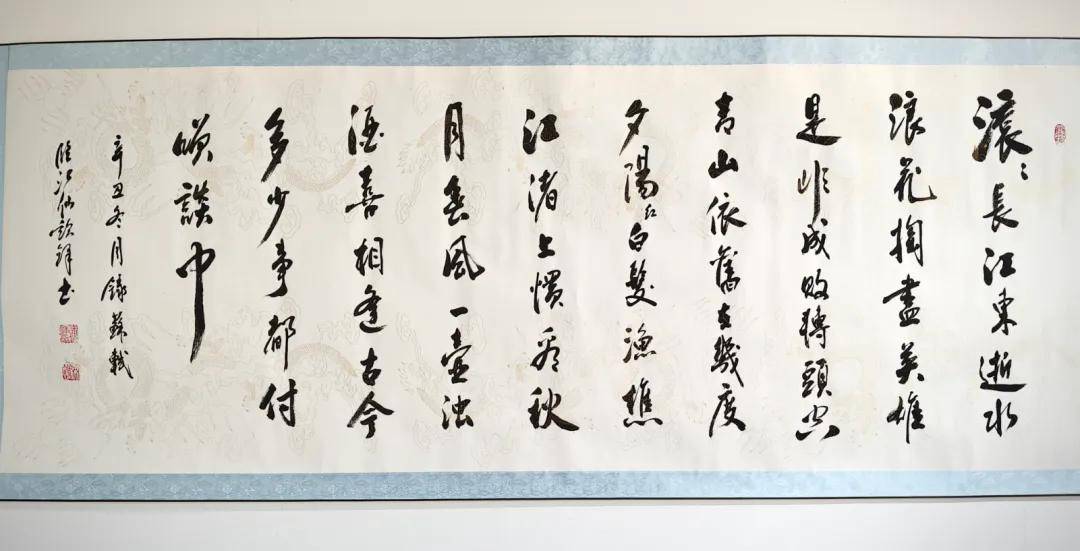 滚〻長江東逝水
浪花掏盡英雄
是非成敗轉頭空
青山依舊在幾度
夕陽紅白髮漁樵
江渚上慣看秋
月春風一壺濁
酒喜相逢古今
多少事都付
笑談中
辛丑冬月錄蘇軾
臨江仙书